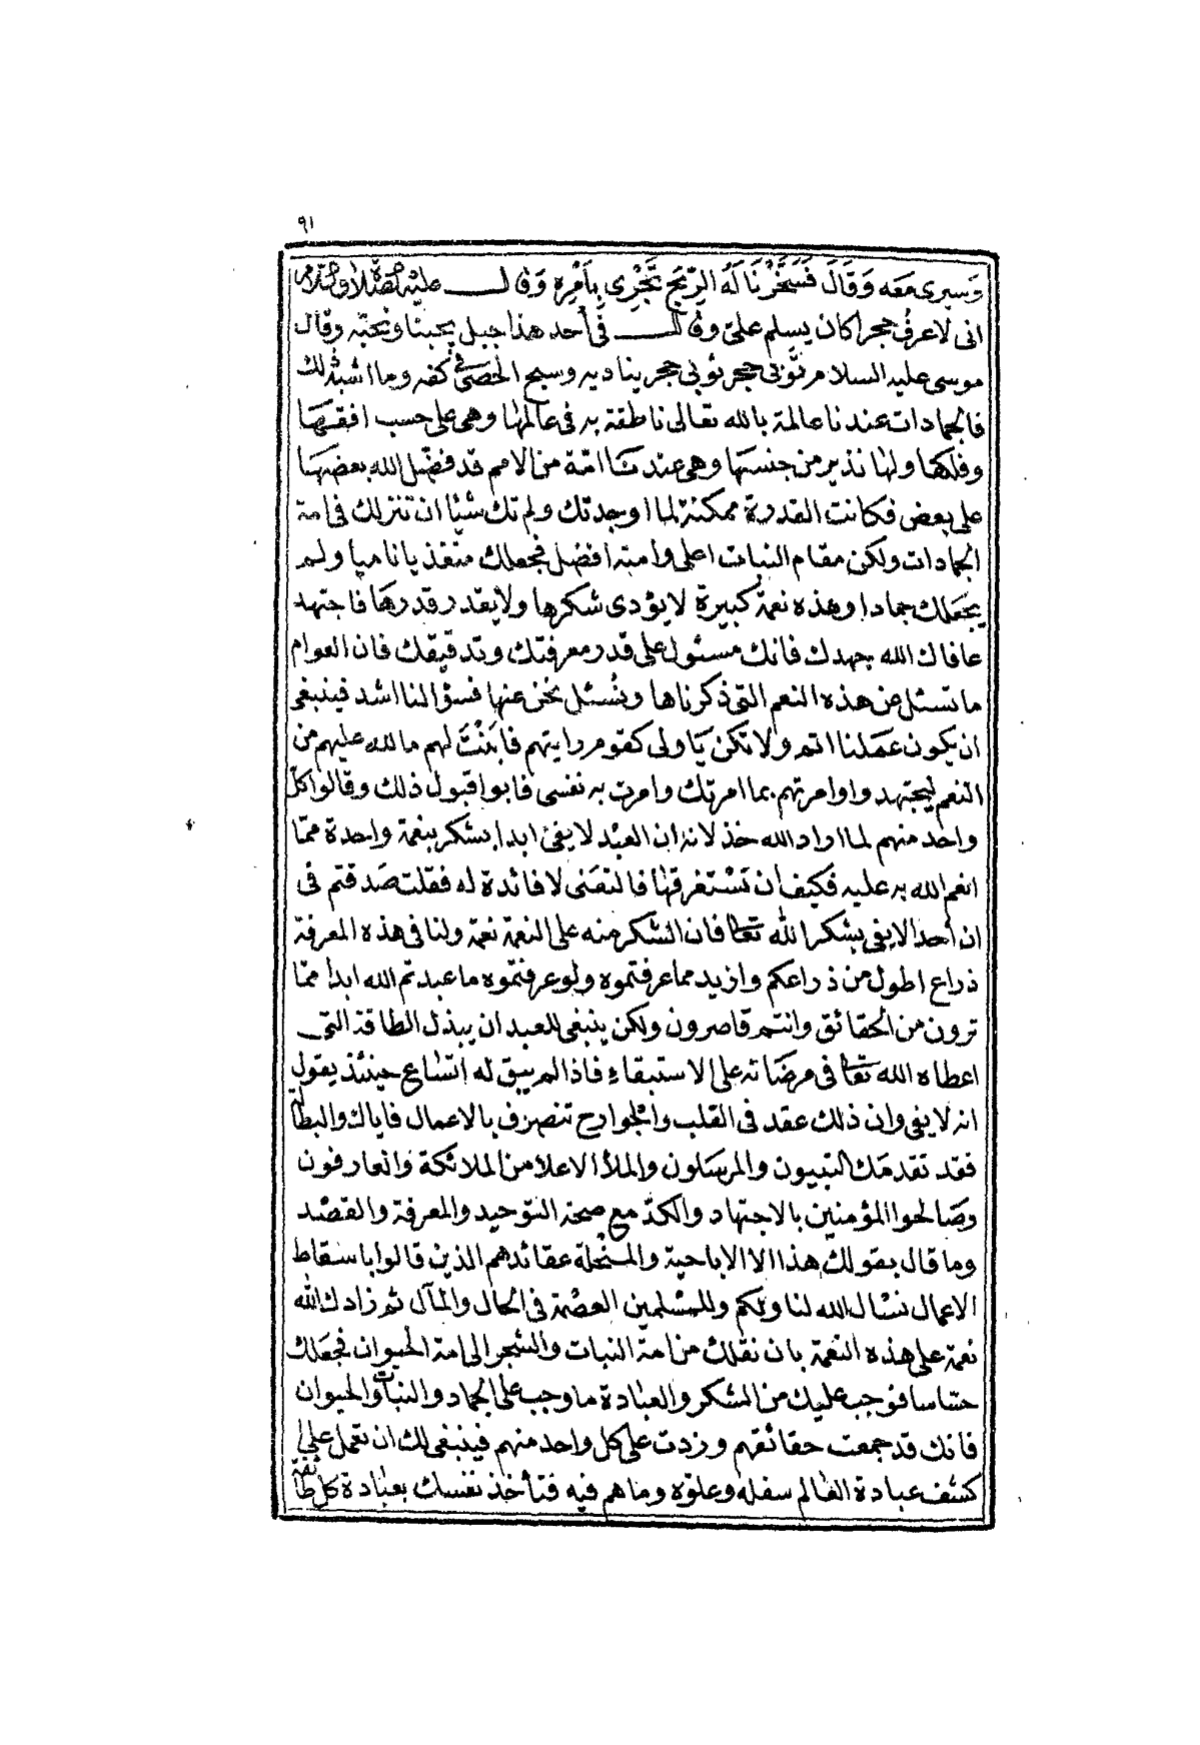 ٩١
وَسيرى مَعَه وَقَالَ فَسَخَّرْنَا لَهُ الرِّيحَ تَجْرِى بِاَمْرِهِ وَقال عليه الصلاة والسلام
انى لاعرفُ حجرا كان يسلم علىّ وقال فى أحد هذا جبل يحبنا ونحبّه وقال
موسى عليه السلام ثَوْبى حجر ثوبى حجر يناديه وسبح الحصى فى كفه وما اشبه ذلك
فالجمادات عندنا عالمة بالله تعالى ناطقة به فى عالمها وهى على حسب افقها
وفلكها ولها نذير من جنسها وهى عندنا امّة من الامم قد فضّل الله بعضها
على بعض فكانت القدرة ممكنة لما اوجدتك ولم تك شيئا ان تنزلك فى امة
الجمادات ولكن مقام النبات اعلى وامته افضل فجعلك متغذيا ناميا ولم
يجعلك جمادا وهذه نعمة كبيرة لا يؤدى شكرها ولا يقدر قدرها فاجتهد
عافاك الله جهدك فانك مسئول على قدر معرفتك وتدقيقك فان العوام
ما تسئل عن هذه النعم التى ذكرناها ونُسئل نحن عنها فسؤالنا اشد فينبغى
ان يكون عملنا اتم ولا تكن يا ولى كقوم رايتهم فابَنْتُ لهم ما لله عليهم من
النعم ليجتهدوا وامرتهم بما امرتك وامرت به نفسى فابوا قبول ذلك وقالوا كلّ
واحد منهم لما اراد الله خذلانه ان العبد لا يفئ ابدا بشكر بنعمة واحدة ممّا
انعم الله به عليه فكيف ان نستغرقها فالتعَنى لا فائدة له فقلت صدقتم فى
ان أحدا لا يفى بشكر الله تعالى فان الشكر منه على النعمة نعمة ولنا فى هذه المعرفة
ذراع اطول من ذراعكم وازيد مما عرفتموه ولو عرفتموه ما عبدتم الله ابدا ممّا
ترون من الحقائق وانتم قاصرون ولكن ينبغى للعبد ان يبذل الطاقة التى
اعطاه الله تعالى فى مرضاته على الاستبقاء فاذا لم يبق له اتساع حينئذ يقول
انه لا يفى وان ذلك عقد فى القلب والجوارح تنصرف بالاعمال فاياك والبطالة
فقد تقدمك النبيون والمرسلون والملأ الاعلا من الملائكة والعارفون
وصالحوا المؤمنين بالاجتهاد والكدّ مع صحة التوحيد والمعرفة والقصد
وما قال بقولك هذا الا الاباحية والمنحلة عقائدهم الذين قالوا باسقاط
الاعمال نسأل الله لنا ولكم وللمسلمين العصمة فى الحال والمآل ثم زادك الله
نعمة على هذه النعمة بان نقلك من امة النبات والشجر الى امة الحيوان فجعلك
حسّاسا فوجب عليك من الشكر والعبادة ما وجب على الجماد والنبات والحيوان
فانك قد جمعت حقائقهم وزدت على كل واحد منهم فينبغى لك ان تعمل على
كشف عبادة العالم سفله وعلوّه وما هم فيه فتأخذ نفسك بعبادة كل طائفة